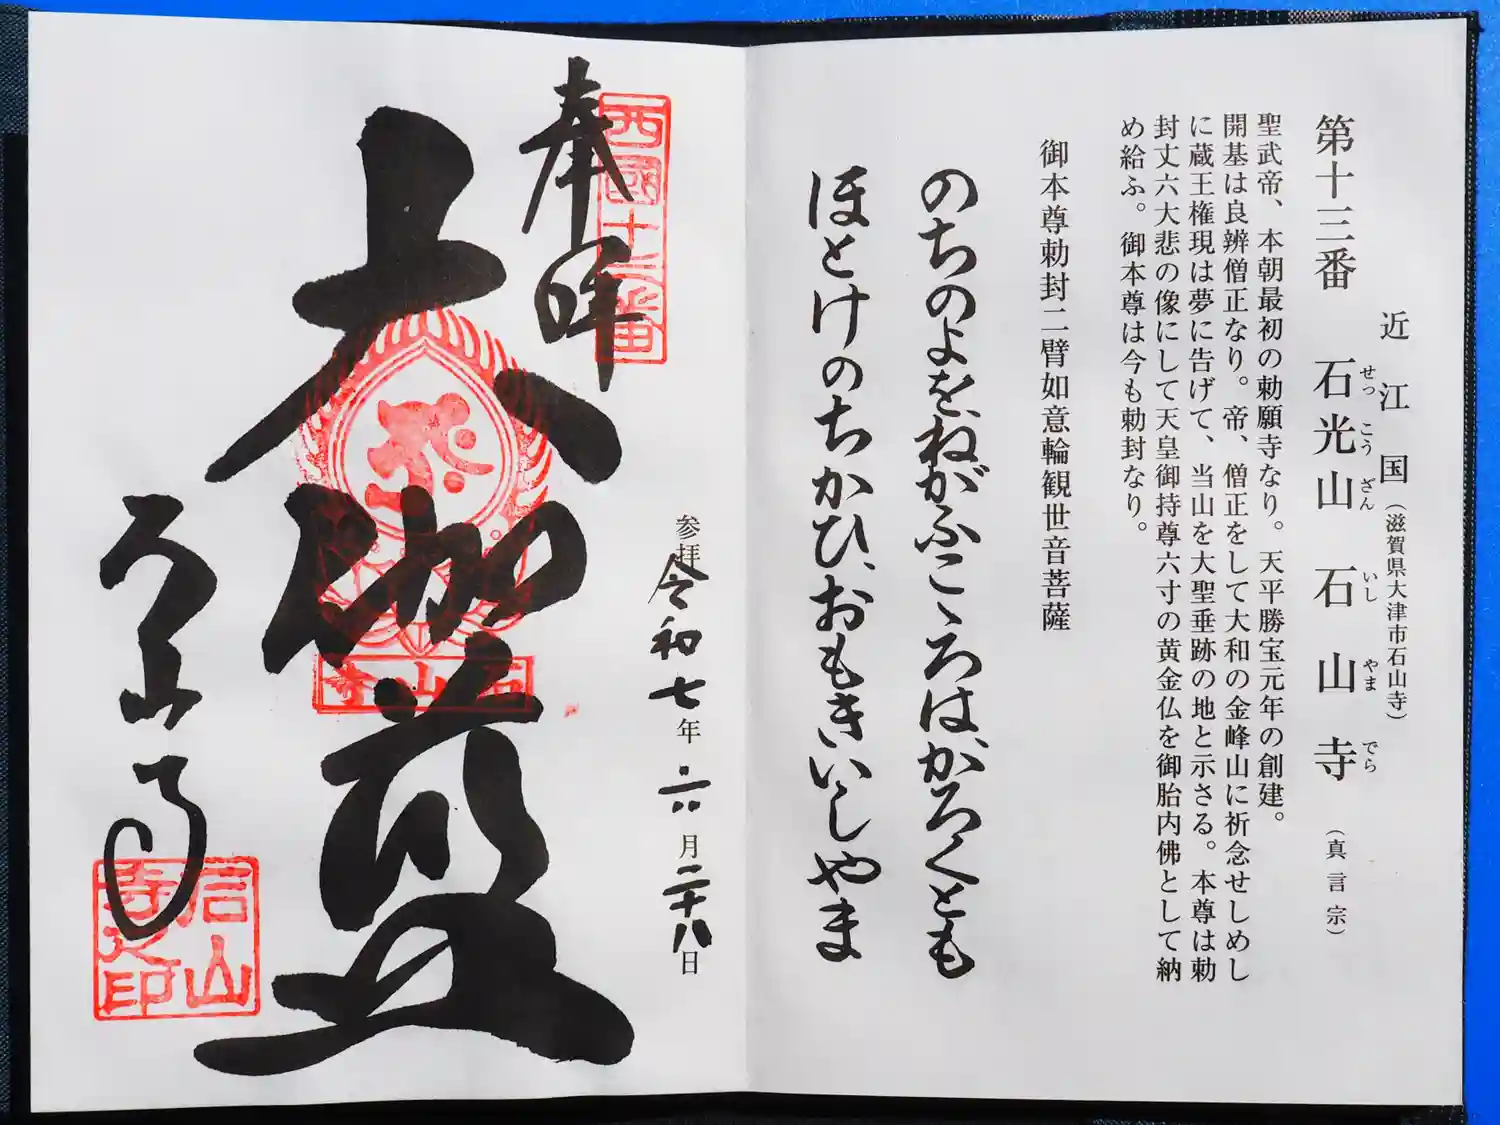 近江国(滋賀県大津市石山寺)
第十三番 石光山 石山寺 (真言宗)
せっ こう ざん いし やま でら
聖武帝、本朝最初の勅願寺なり。天平勝宝元年の創建。
開基は良辨僧正なり。帝、僧正をして大和の金峰山に祈念せしめし
に蔵王権現は夢に告げて、当山を大聖垂跡の地と示さる。本尊は勅
封丈六大悲の像にして天皇御持尊六寸の黄金仏を御胎内佛として納
め給ふ。御本尊は今も勅封なり。
御本尊勅封二臂如意輪観世音菩薩
のちのよを、ねがふこゝろは、かろくとも
ほとけのちかひ、おもきいしやま
西國十三番
奉拝
参拝令和七年六月二十八日
大伽藍
石山寺
石山寺
石山寺之印